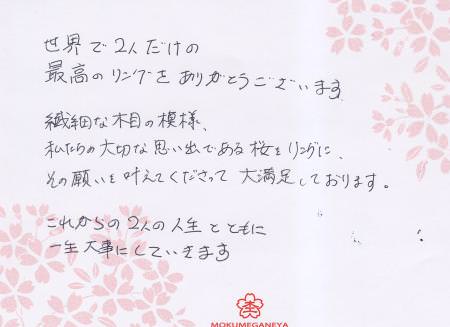 世界で2人だけの
最高のリングをありがとうございます
繊細な木目の模様、
私たちの大切な思い出である桜をリングに、
その願いを叶えてくださって大満足しております。
これからの2人の人生とともに
一生大事にしていきます
MOKUMEGANEYA